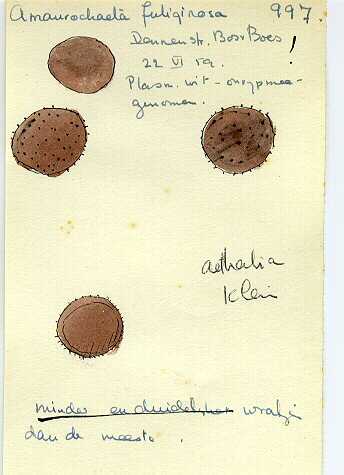 Amaurochaete fuliginosa 997
Dennenstr. Bosv Boes !
22 VI 59
Plasm. wit - onrijp mee-
genomen.
aethalia
klein
minder en duidelijker wratjes
dan de meeste.